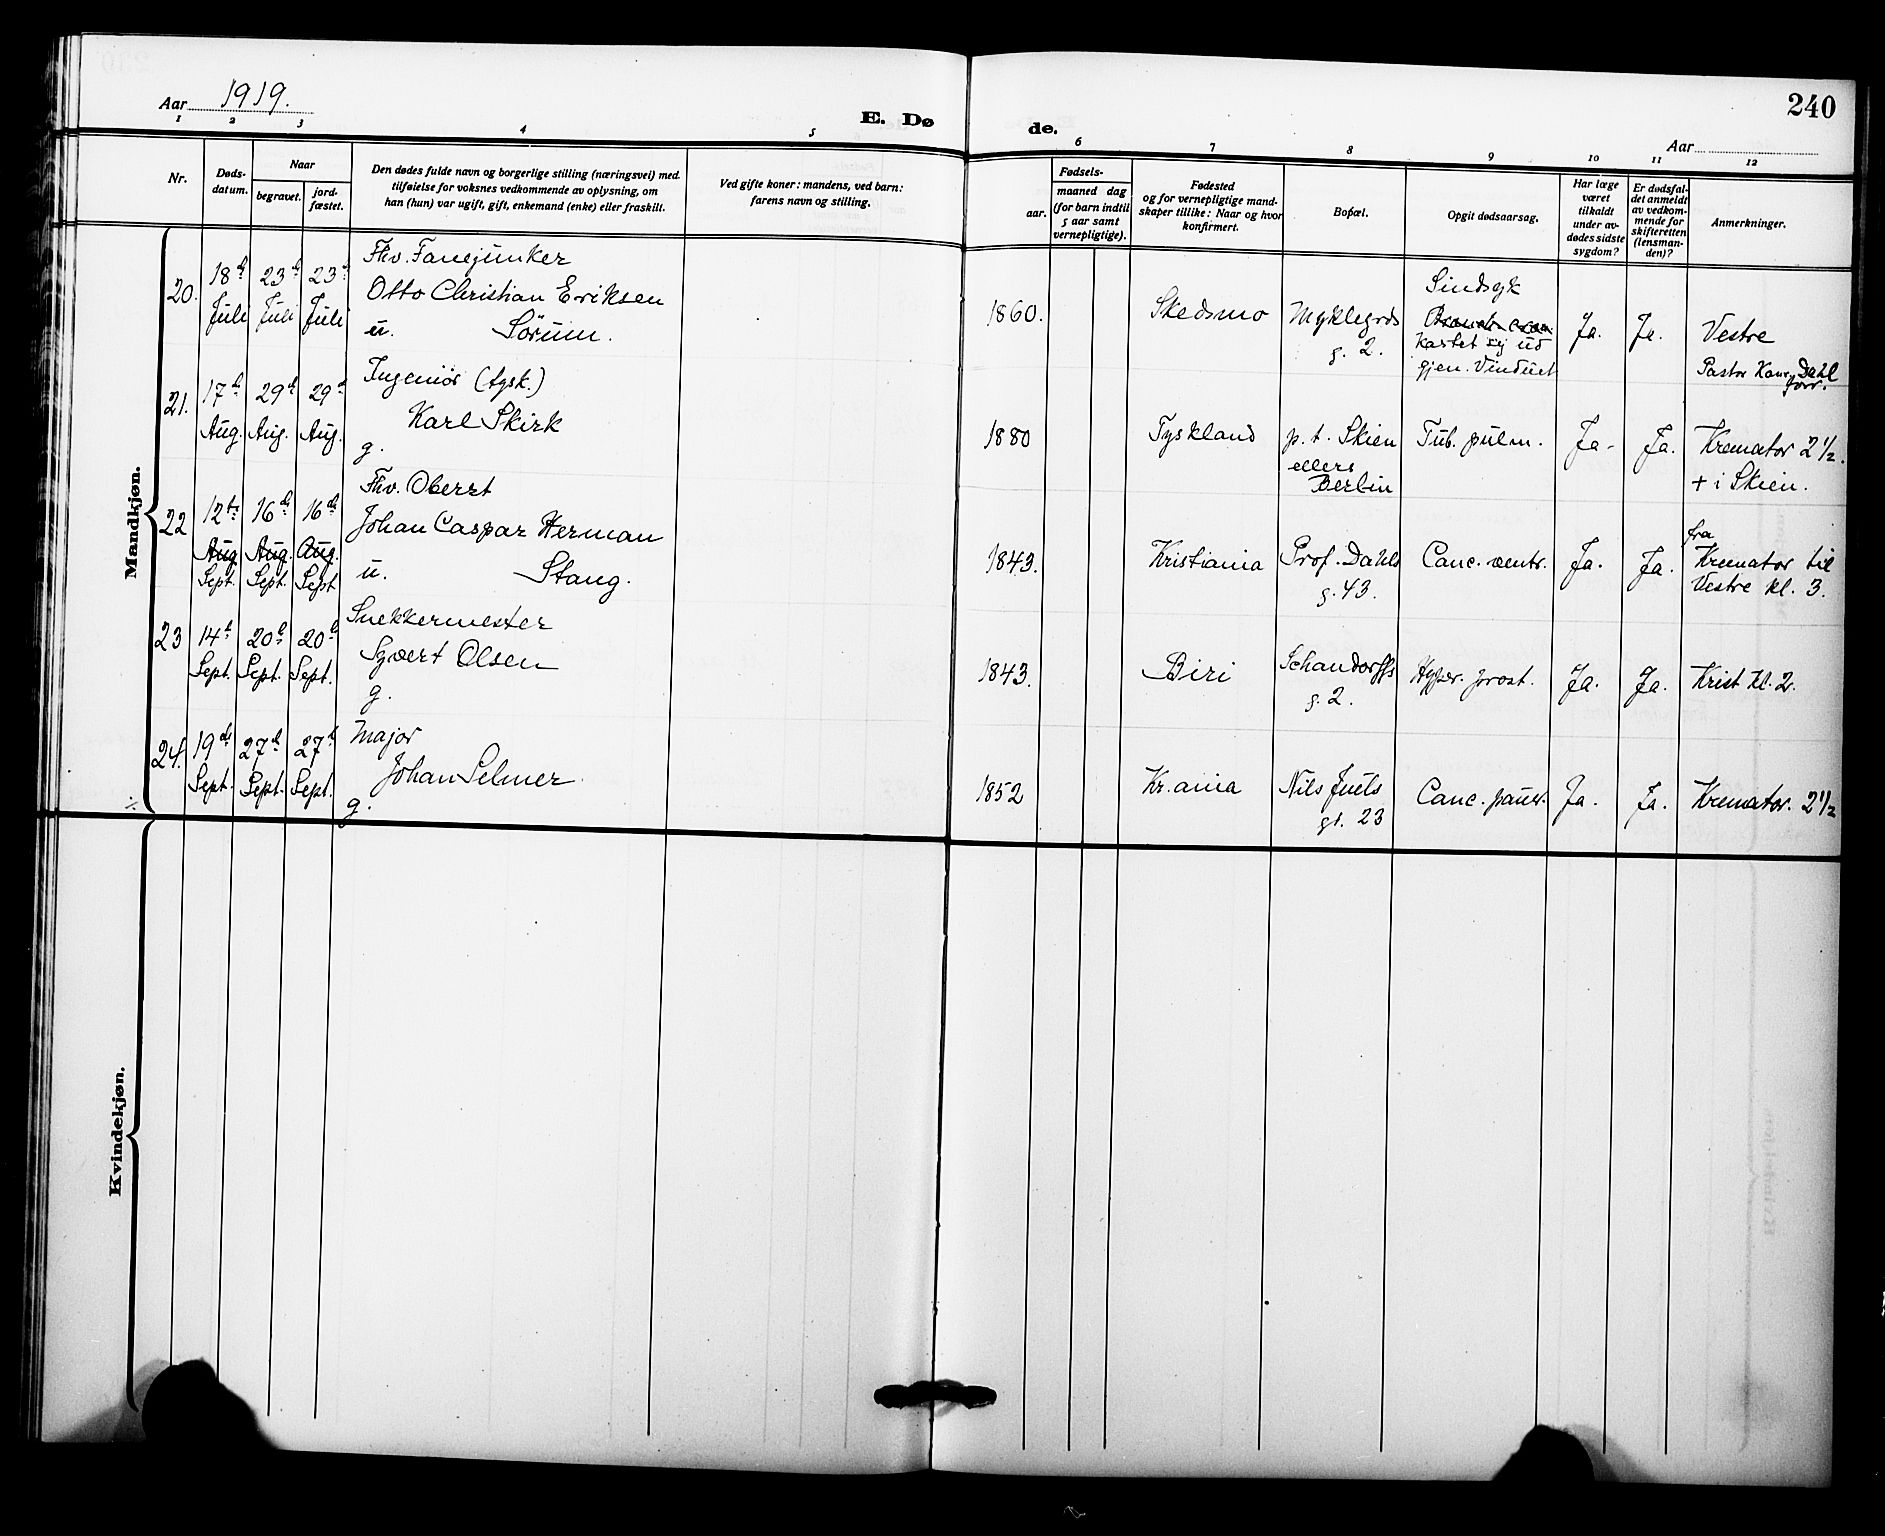 240
Aar 1919.
E. Døde.
Aar
1 2 3 4 5 6 7 8 9 10 11 12
Nr.
Døds-
datum.
Naar
begravet.
jord-
fæstet.
Den dødes fulde navn og borgerlige stilling (næringsvei) med
tilføielse for voksnes vedkommende av oplysning, om
han (hun) var ugift, gift, enkemand (enke) eller fraskilt.
Ved gifte koner: mandens, ved barn:
farens navn og stilling.
Fødsels-
aar.
maaned dag
(for barn indtil
5 aar samt
vernepligtige).
Fødested
og for vernepligtige mand-
skaper tillike: Naar og hvor
konfirmert.
Bopæl.
Opgit dødsaarsag.
Har læge
været
tilkaldt
under av-
dødes sidste
sygdom?
Er dødsfal-
det anmeldt
av vedkom-
mende for
skifteretten
(lensman-
den)?
Anmerkninger.
Mandkjøn.
20.
18d
Juli
23d
Juli
23d
Juli
Fhv. Fanejunker
Otto Christian Eriksen
u. Sörum.
1860.
Skedsmo
Myklegrds
g. 2.
Sindsyk
kastet sig ud
gjen. Vinduet
Ja.
Ja.
Vestre
Pastor Dahl
forr.
21.
17d
Aug.
29d
Aug.
29d
Aug.
Ingeniör (tysk.)
Karl Skirk
g.
1880
Tyskland
p. t. Skien
ellers
Berlin
Tub. pulm.
Ja.
Ja.
Kremator 2½.
+ i Skien.
22
12te
Aug
Sept.
16d
Aug.
Sept.
16d
Aug.
Sept
Fhv. Oberst
Johan Caspar Herman
u. Stang.
1843.
Kristiania
Prof. Dahls
g. 43.
Canc. ventr.
Ja.
Ja.
fra
Kremator til
Vestre kl. 3.
23
14d
Sept.
20d
Sept.
20d
Sept.
Snekkermester
Syvert Olsen
g.
1843.
Biri
Schandorffs
g. 2.
Hyper. prost.
Ja.
Ja.
Krist kl. 2.
24.
19d
Sept.
27d
Sept.
27d
Sept.
Major
Johan Selmer
g.
1852
Kr.ania
Nils Juels
gt. 23
Canc. pancr.
Ja.
Ja.
Kremator. 2½
Kvindekjøn.